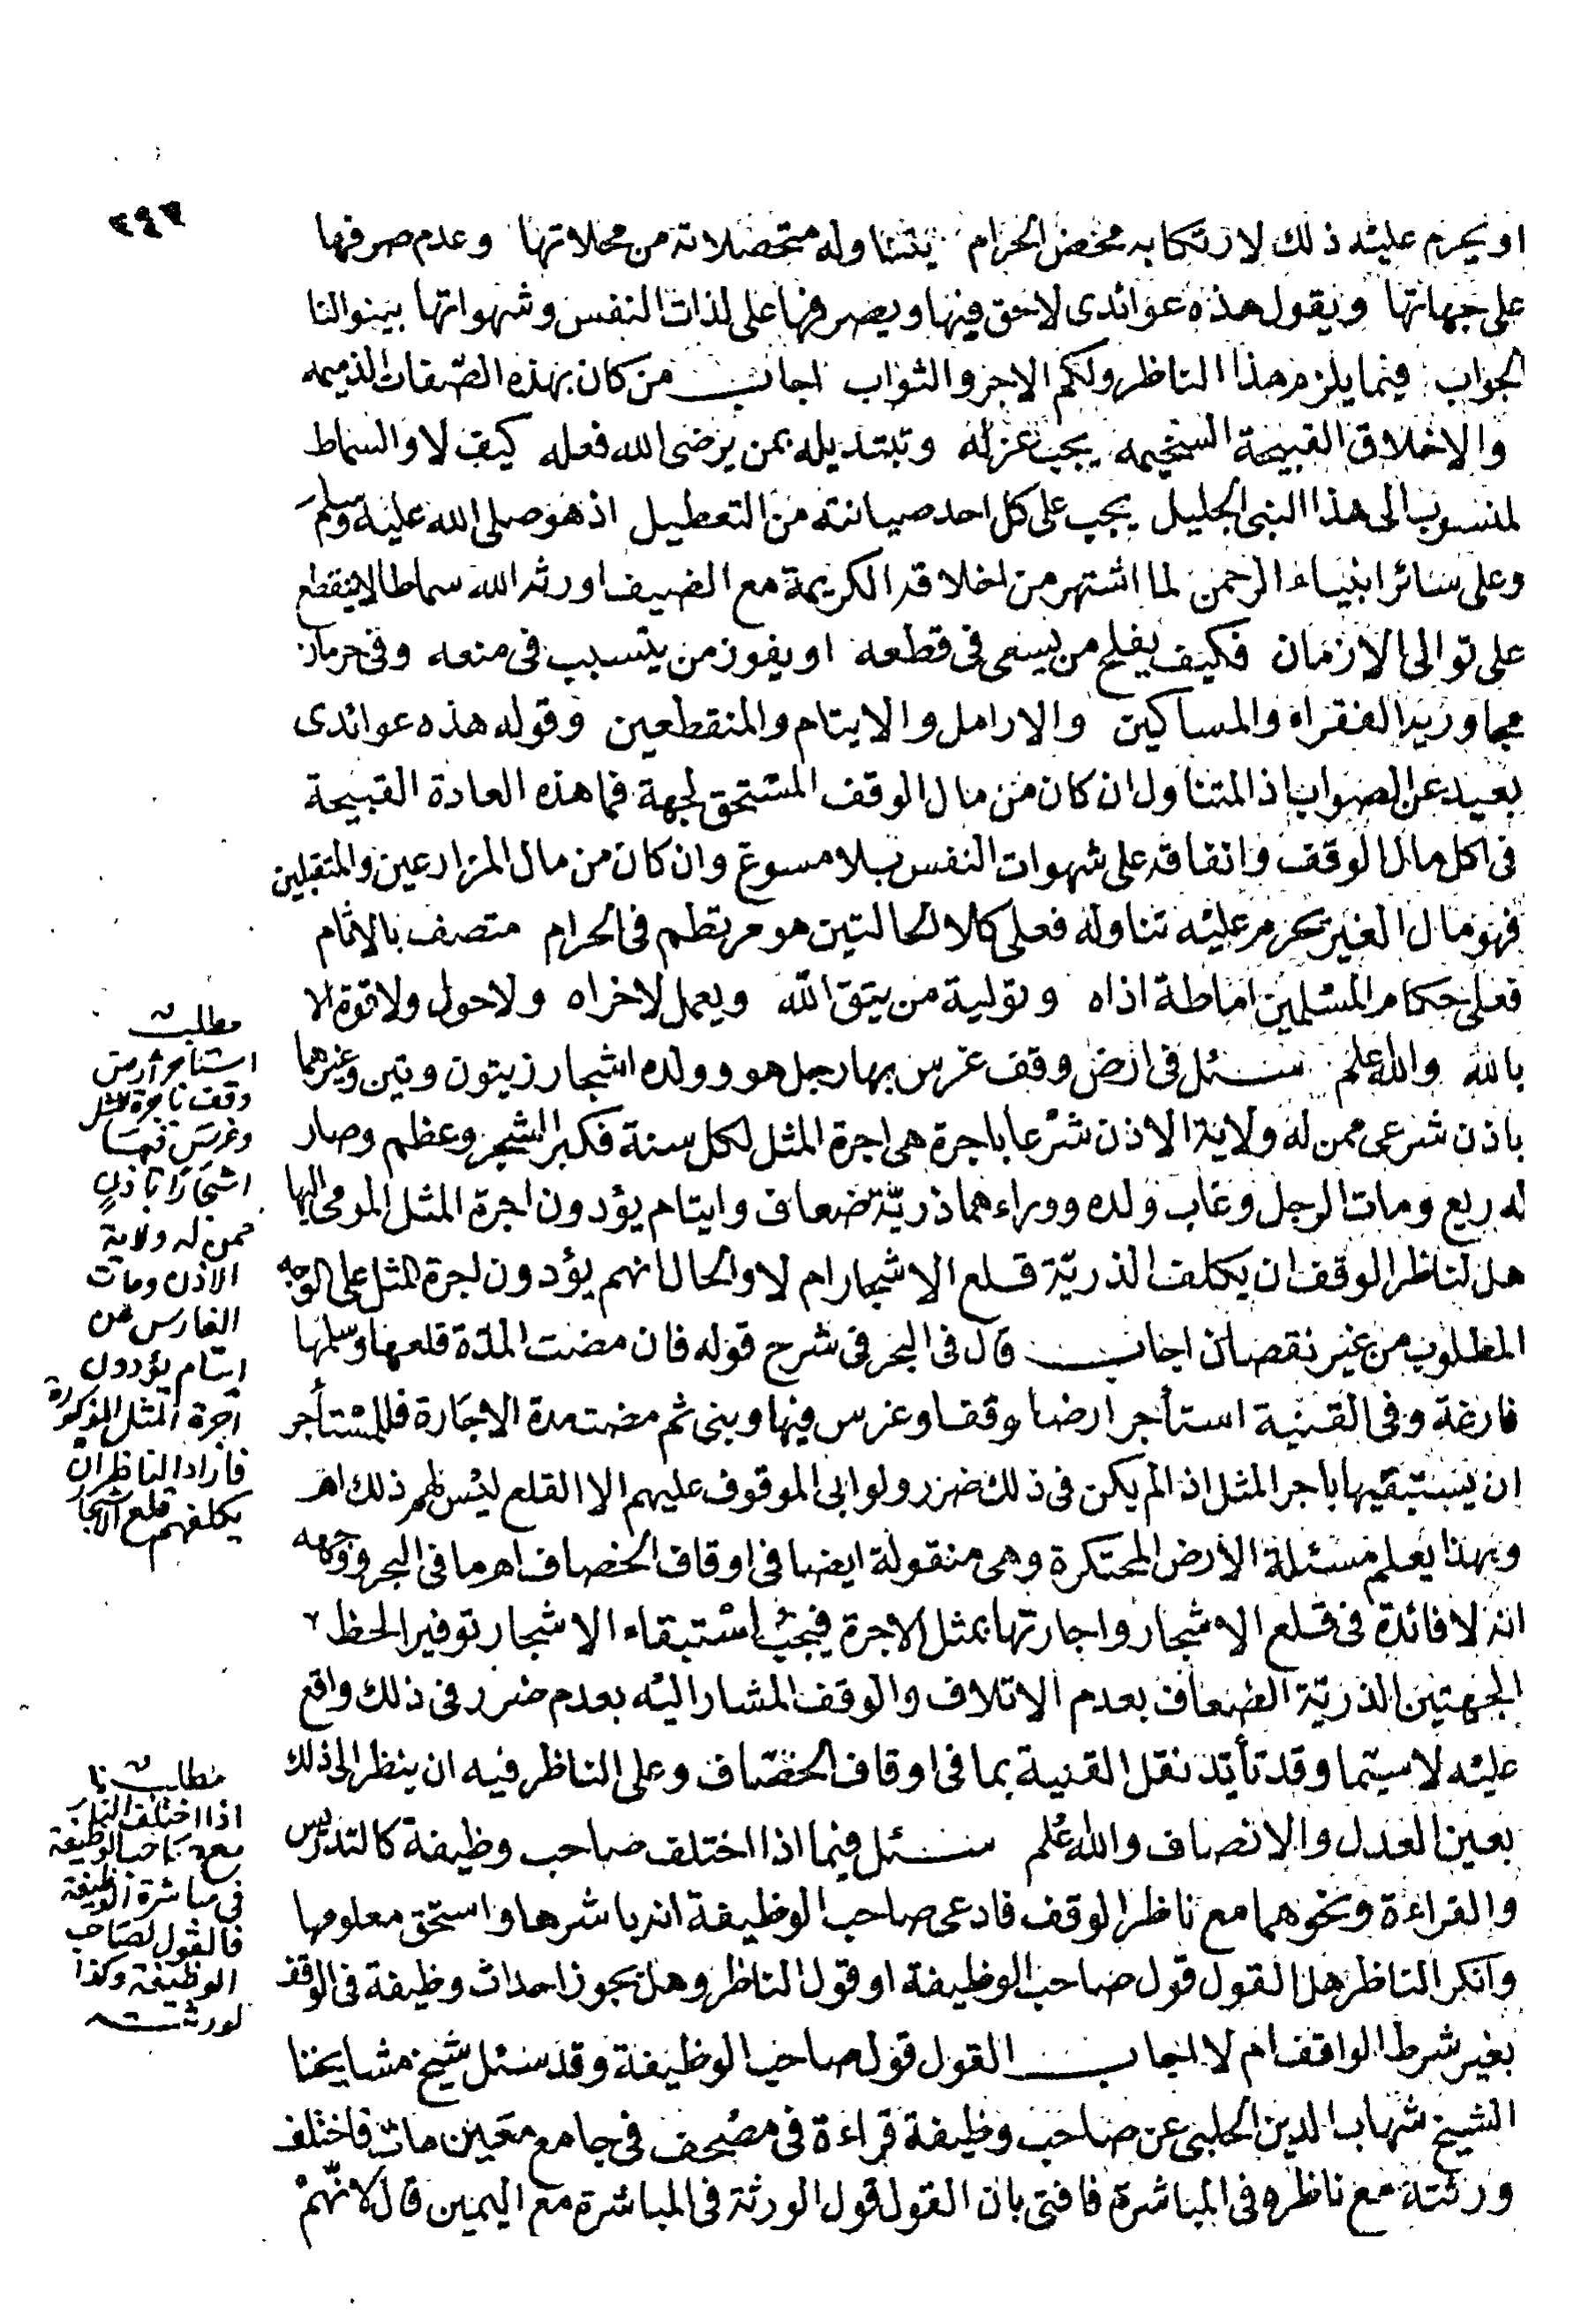 ٢٩٣
او يحرم عليه ذلك لارتكابه محض الحرام يتناوله متحصلاته من محلاتها وعدم صرفها
على جهاتها ويقول هذه عوائدى لاحق فيها ويصرفها على لذات النفس وشهواتها بينوا لنا
الجواب فيما يلزم هذا الناظر ولكم الاجر والثواب اجاب من كان بهذه الصفات الذميمه
والاخلاق القبيحة السخيمه يجب عزله وتبديله بمن يرضى الله فعله كيف لا والسماط
لمنسوب الى هذا النبى الجليل يجب على كل احد صيانته من التعطيل اذ هو صلى الله عليه وسلم
وعلى سائر انبياء الرحمن لما اشتهر من اخلاقه الكريمة مع الضيف اورثه الله سماطا لا ينقطع
على توالى الازمان فكيف يفلح من يسعى فى قطعه او يفوز من يتسبب فى منعه وفى حرمان
مجاوريه الفقراء والمساكين والارامل والايتام والمنقطعين وقوله هذه عوائدى
بعيد عن الصواب اذ المتناول ان كان من مال الوقف المستحق لجهة فما هذه العادة القبيحة
فى اكل مال الوقف وانفاقه على شهوات النفس بلا مسوغ وان كان من مال المزارعين والمتقبلين
فهو مال الغير يحرم عليه تناوله فعلى كلا الحالتين هو مرتطم فى الحرام متصف بالاثام
فعلى حكام المسلمين اماطة اذاه وتولية من يتق الله ويعمل لاخراه ولا حول ولا قوة الا
بالله والله اعلم سئل فى ارض وقف غرس بها رجل هو وولده اشجار زيتون وتين وغيرهما
باذن شرعى ممن له ولاية الاذن شرعا باجرة هى اجرة المثل لكل سنة فكبر الشجر وعظم وصار
له ريع ومات الرجل وغاب ولده ووراءهما ذرية ضعاف وايتام يؤدون اجرة المثل المومى اليها
هل لناظر الوقف ان يكلف الذرية قلع الاشجار ام لا والحال انهم يؤدون اجرة المثل على الوجه
المطلوب من غير نقصان اجاب قال فى البحر فى شرح قوله فان مضت المدة قلعها وسلمها
فارغة وفى القنية استأجر ارضا وقفا وغرس فيها وبنى ثم مضت مدة الاجارة فللمستأجر
ان يستبقيها باجر المثل اذا لم يكن فى ذلك ضرر ولو ابى الموقوف عليهم الا القلع ليس لهم ذلك اهـ
وبهذا يعلم مسئلة الارض المحتكرة وهى منقولة ايضا فى اوقاف الخصاف اهـ ما فى البحر ووجهه
انه لا فائدة فى قلع الاشجار واجارتها بمثل الاجرة فيجب استبقاء الاشجار توفير الحظ
الجهتين الذرية الضعاف بعدم الاتلاف والوقف المشار اليه بعدم ضرر فى ذلك واقع
عليه لا سيما وقد تأيد نقل القنية بما فى اوقاف الخصاف وعلى الناظر فيه ان ينظر الى ذلك
بعين العدل والانصاف والله اعلم سئل فيما اذا اختلف صاحب وظيفة كالتدريس
والقراءة ونحوهما مع ناظر الوقف فادعى صاحب الوظيفة انه باشرها واستحق معلومها
وانكر الناظر هل القول قول صاحب الوظيفة او قول الناظر وهل يجوز احداث وظيفة فى الوقف
بغير شرط الواقف ام لا اجاب القول قول صاحب الوظيفة وقد سئل شيخ مشايخنا
الشيخ شهاب الدين الحلبى عن صاحب وظيفة قراءة فى مصحف فى جامع معين مات فاختلف
ورثته مع ناظره فى المباشرة فافتى بان القول قول الورثة فى المباشرة مع اليمين قال لانهم
مطلب
استأجر ارض
وقف باجرة المثل
وغرس فيها
اشجارا باذن
ممن له ولاية
الاذن ومات
الغارس عن
ايتام يؤدون
اجرة المثل المذكورة
فاراد الناظر ان
يكلفهم قلع الاشجار
مطلب
اذا اختلف الناظر
مع صاحب الوظيفة
فى مباشرة الوظيفة
فالقول لصاحب
الوظيفة وكذا
لورثته